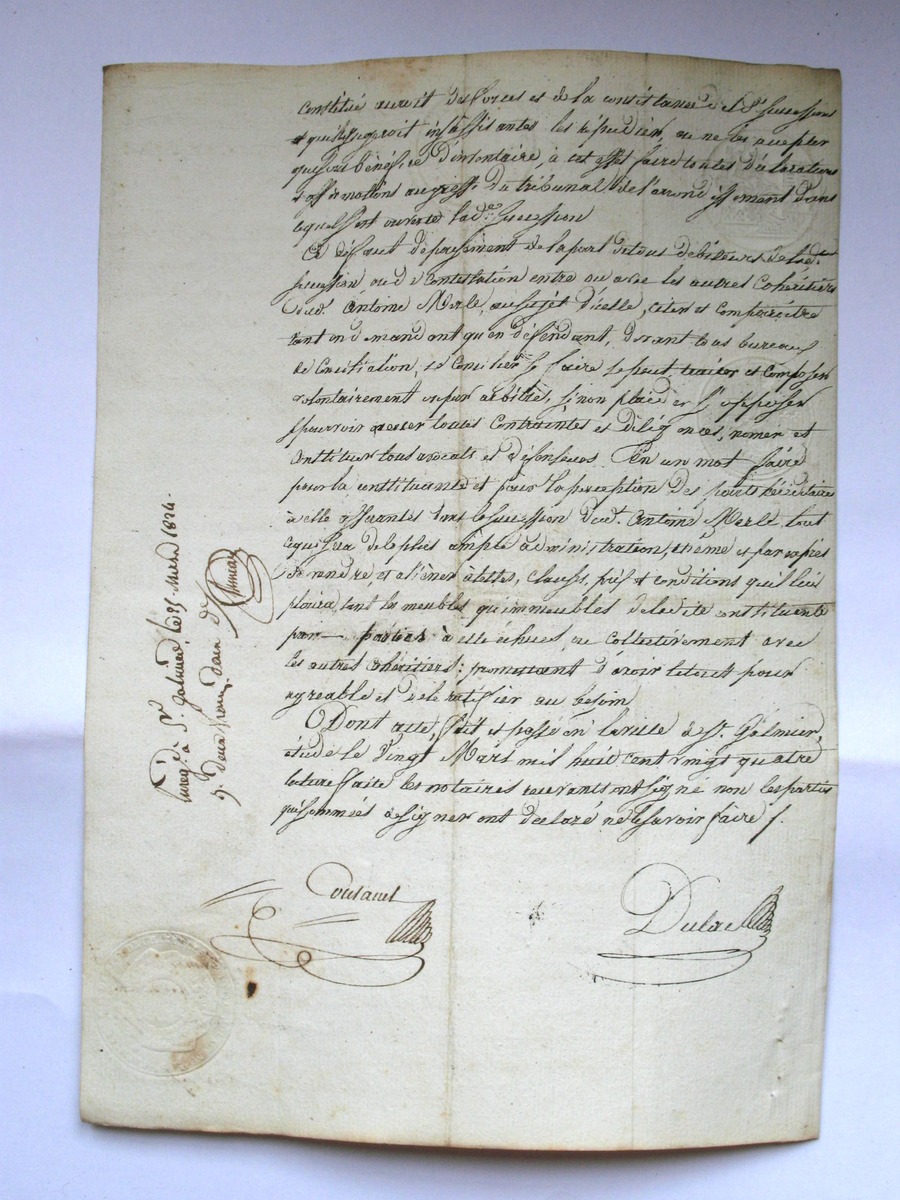 Constitué auroit des forces et de la consistance desd. successions
insuffisantes les répudier, ou ne les accepter
que sous bénéfice d'inventaire, à cet effet faire toutes déclarations
affirmations au greffe du tribunal de l'arrondissement dans
lequel sont ouverte lad.e succession
a défaut de payement de la part de tous débiteurs de lad.
succession ou de contestation entre ou avec les autres Cohéritiers
dud. Antoine Merle, au sujet d'icelle, citer et comparoitre
tant en demandant qu'en défendant, devant tous bureaux
de Conciliation, se Concilier faire se peut, traiter et composer
volontairement ou par arbitre, si non plaider s'opposer
pourvoir exercer toutes Contraintes et diligences, nomer et
Constituer tous avocats et défenseurs. En un mot faire
pour la constituante et pour la perception des parts héréditaires
à elle afférantes dans la succession dud. Antoine Merle, tout
ce qui sera de la plus ample administration, même et par exprès
vendre, et aliéner à telles, clauses, prix et conditions qu'il lui
plaira, tant les meubles qu'immeubles de ladite constituante
par parties à elle échues, ou collectivement avec
les autres cohéritiers: promettant d'avoir le tout pour
agréable et de le ratifier au besoin
Dont acte, fait et passé en la ville de St. Galmier,
étude le Vingt Mars mil huit cent vingt quatre
lecture faite les notaires recevants ont signé non les parties
qui sommées de signer ont déclaré ne le savoir faire /.
Dulac
Enreg. à St. Galmier le 23. Mars 1824.
deux francs